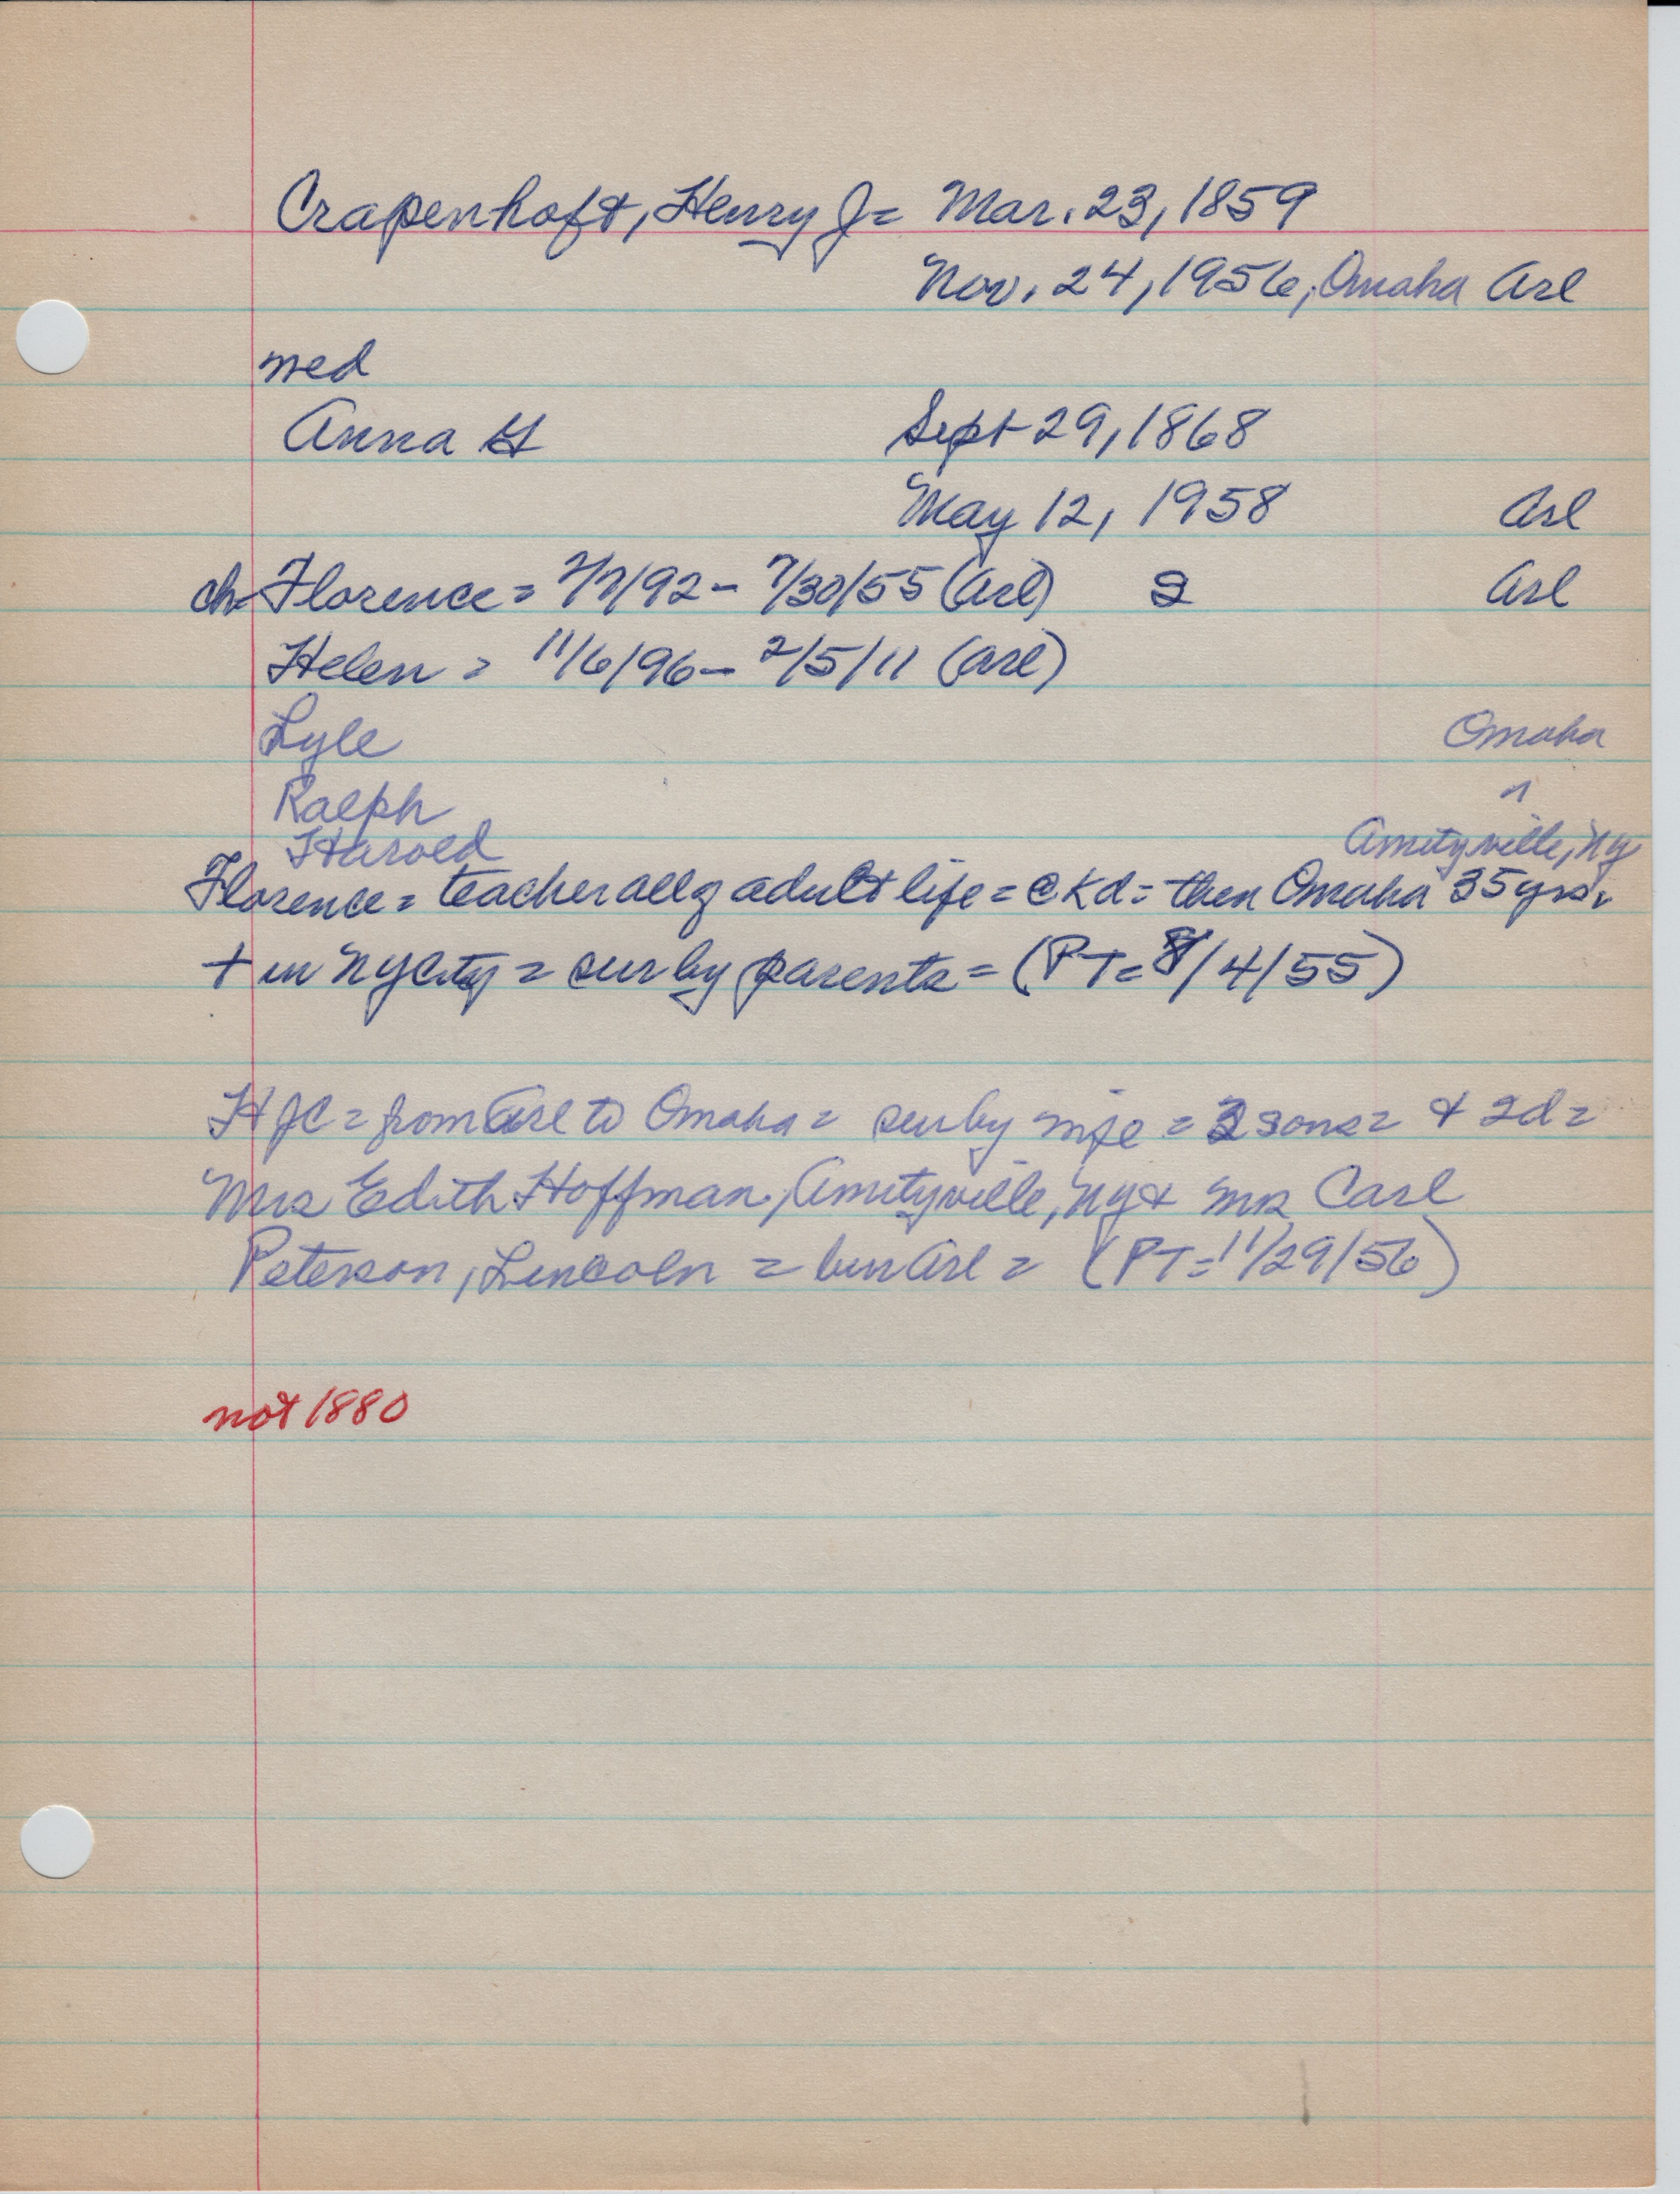 Crapenhoft, Henry J = Mar. 23, 1859
Nov. 24, 1956, Omaha Arl
med
Anna G Sept 29, 1868
May 12, 1958 Arl
ch = Florence = 7/7/92 - 7/30/55 (Arl) S Arl
Helen = 11/6/96 - 2/5/11 (Arl)
Lyle Omaha
Ralph "
Harold Amityville, NY
Florence = teacher all of adult life = @ Kd = then Omaha 35 yrs.
+ in NY City = sur by parents = (PT = 8/4/55)
HJC = from Arl to Omaha = sur by wife = 3 sons = & 2d =
Mrs Edith Hoffman, Amityville, NY & Mrs Carl
Peterson, Lincoln = bur Arl = (PT = 11/29/56)
not 1880